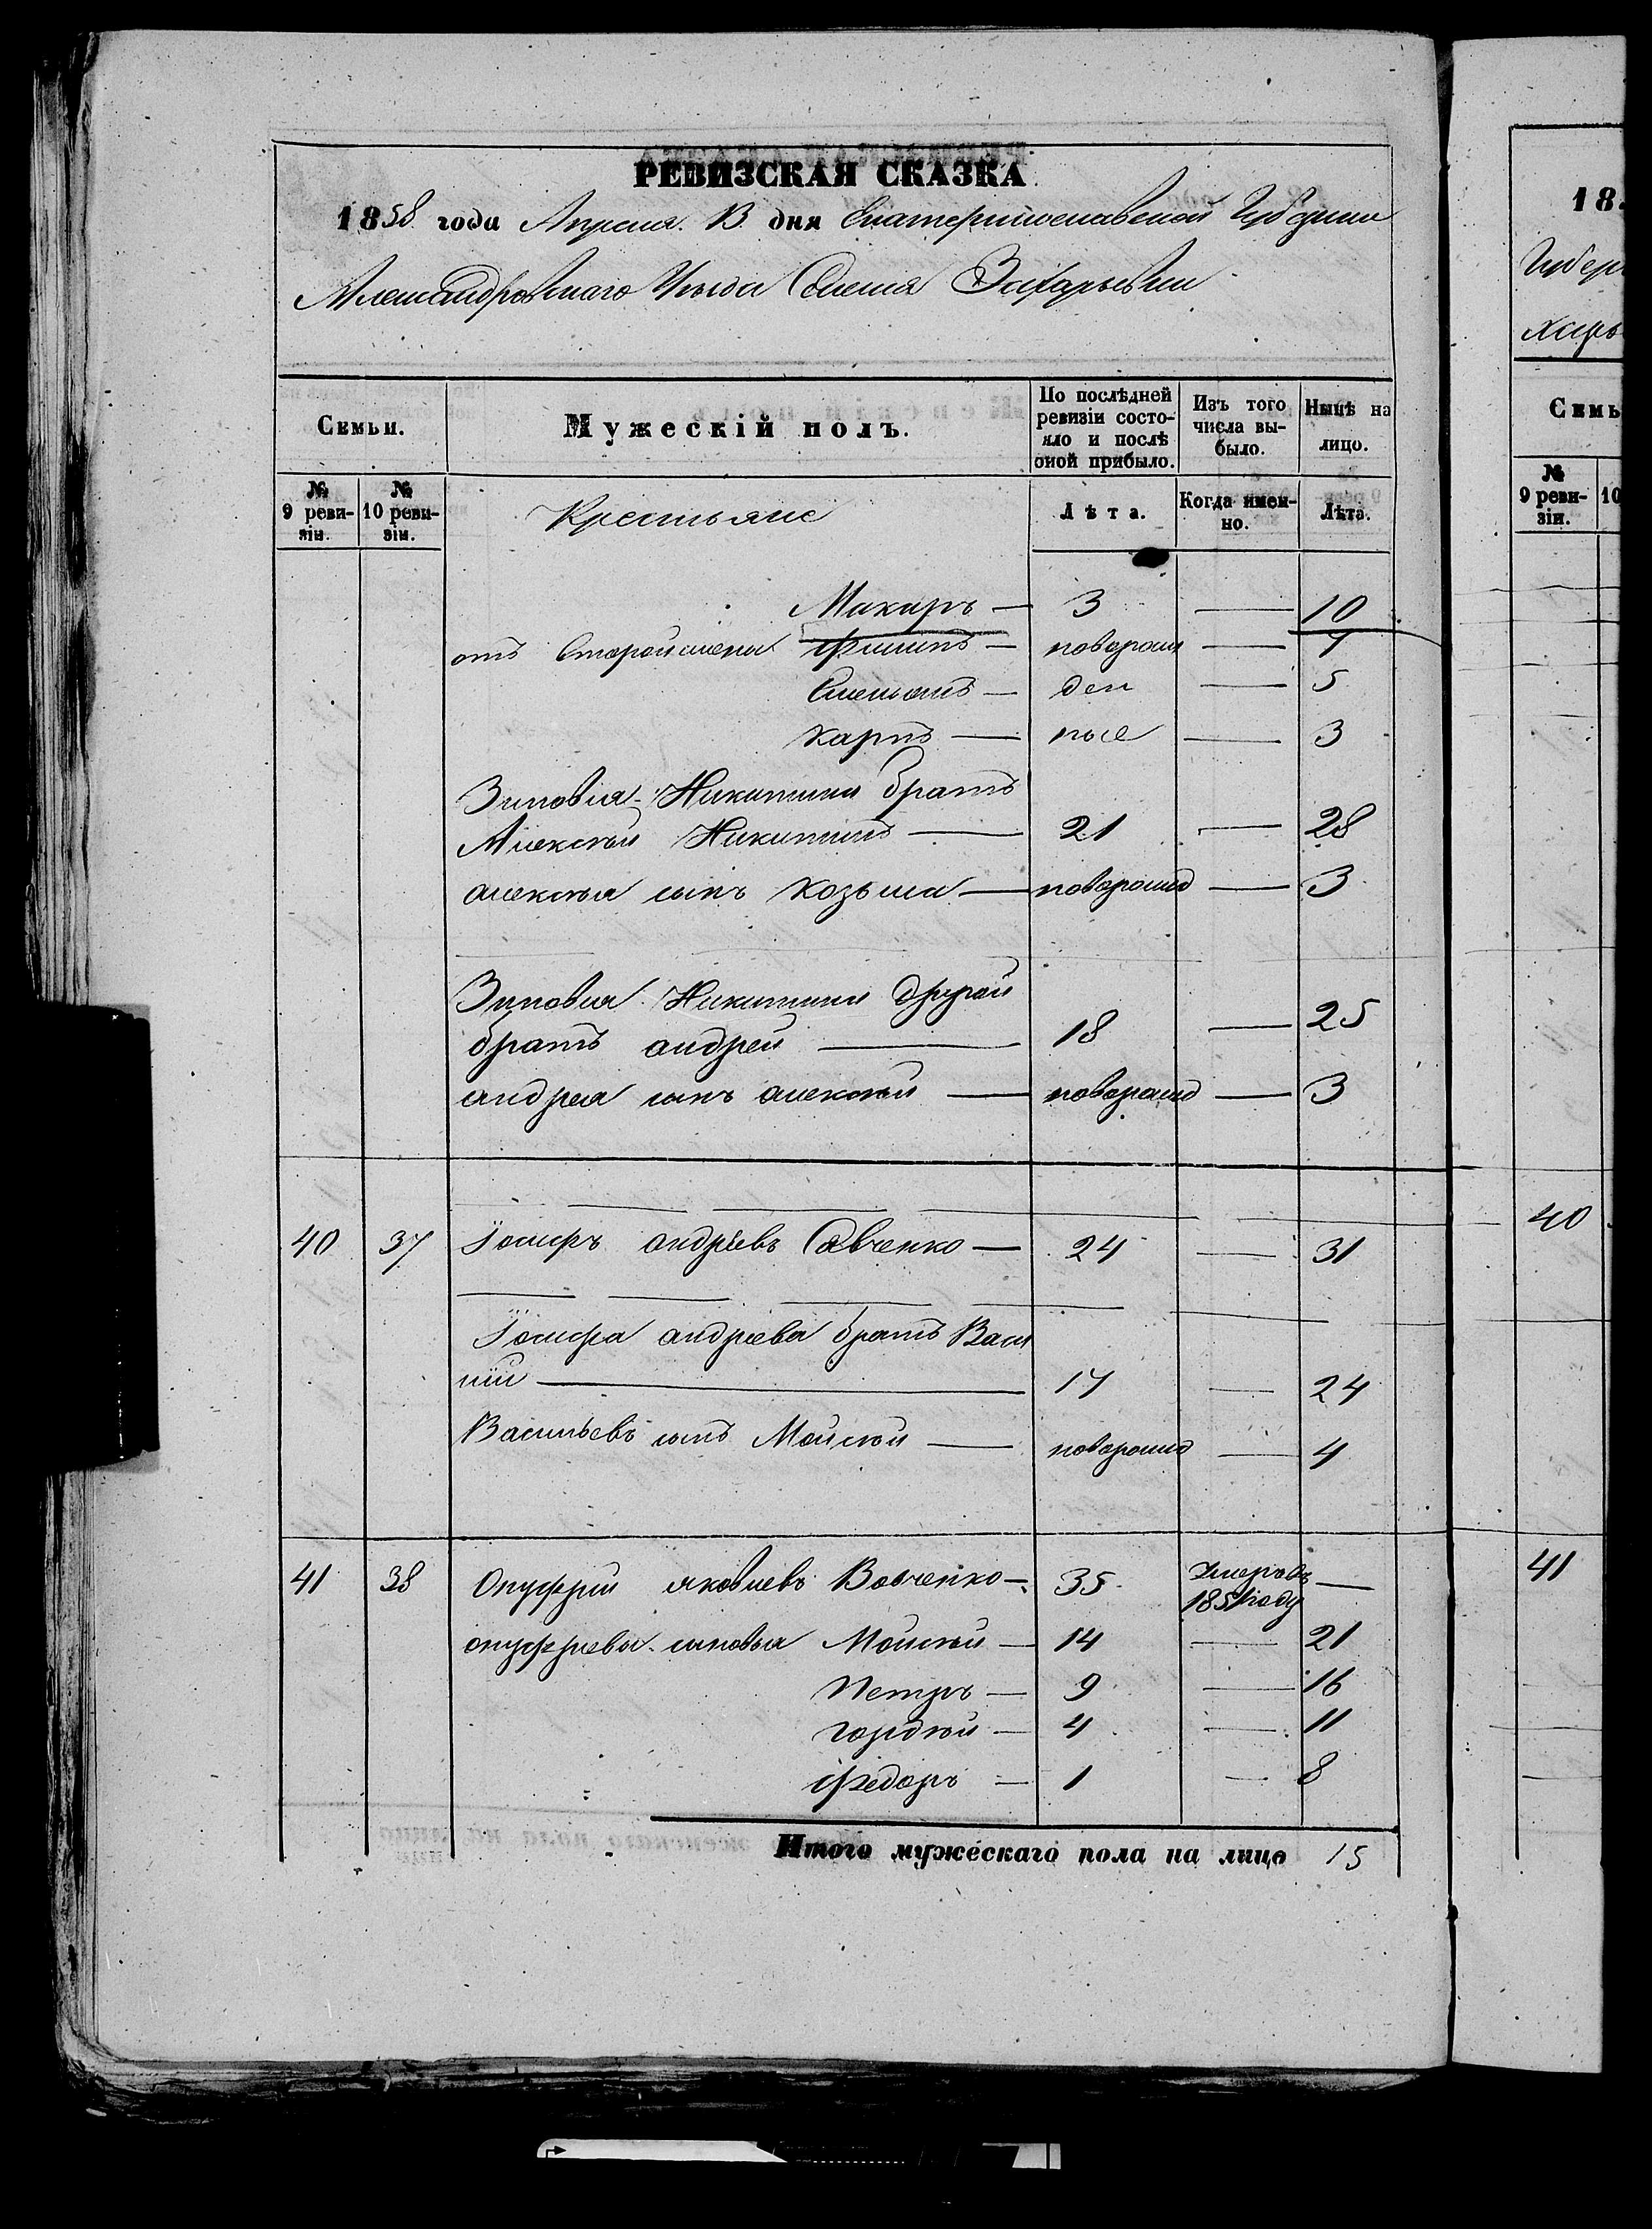 РЕВИЗСКАЯ СКАЗКА
1858 года Апреля 13 дня Екатеринославской Губернии
Александровского Уезда Селения Захарьевки
Семьи.
Мужескій полъ.
По послѣдней ревизіи состояло и послѣ оной прибыло.
Изъ того числа выбыло.
Нынѣ на лицо.
№ 9 ревизіи.
№ 10 ревизіи.
Крестьяне
Лѣта.
Когда именно.
Лѣта.
Макаръ — 3 — 10
отъ второй жены Филипъ — новорож — 7
— ден — 5
Карпъ — ные — 3
Зиновия Никитина братъ
Алексѣй Никитинъ — 21 — 28
алексѣя сынъ Козьма — новорожд — 3
Зиновия Никитина другой
братъ андрей — 18 — 25
андрея сынъ алексѣй — новорожд — 3
40 37 Іосифъ андрѣевъ Савченко — 24 — 31
Іосифа андреева братъ Васи
лій — 17 — 24
Васильевъ сынъ Мойсѣй — новорожд — 4
41 38 Онуфрій яковлевъ Вовченко — 35 Умеръ въ 1851 году —
онуфриевы сыновья Мойсѣй — 14 — 21
Петръ — 9 — 16
гордѣй — 4 — 11
Федоръ — 1 — 8
Итого мужескаго пола на лицо 15
18
Губер
харь
Семь
№ 9 ревизіи.
10
40
41